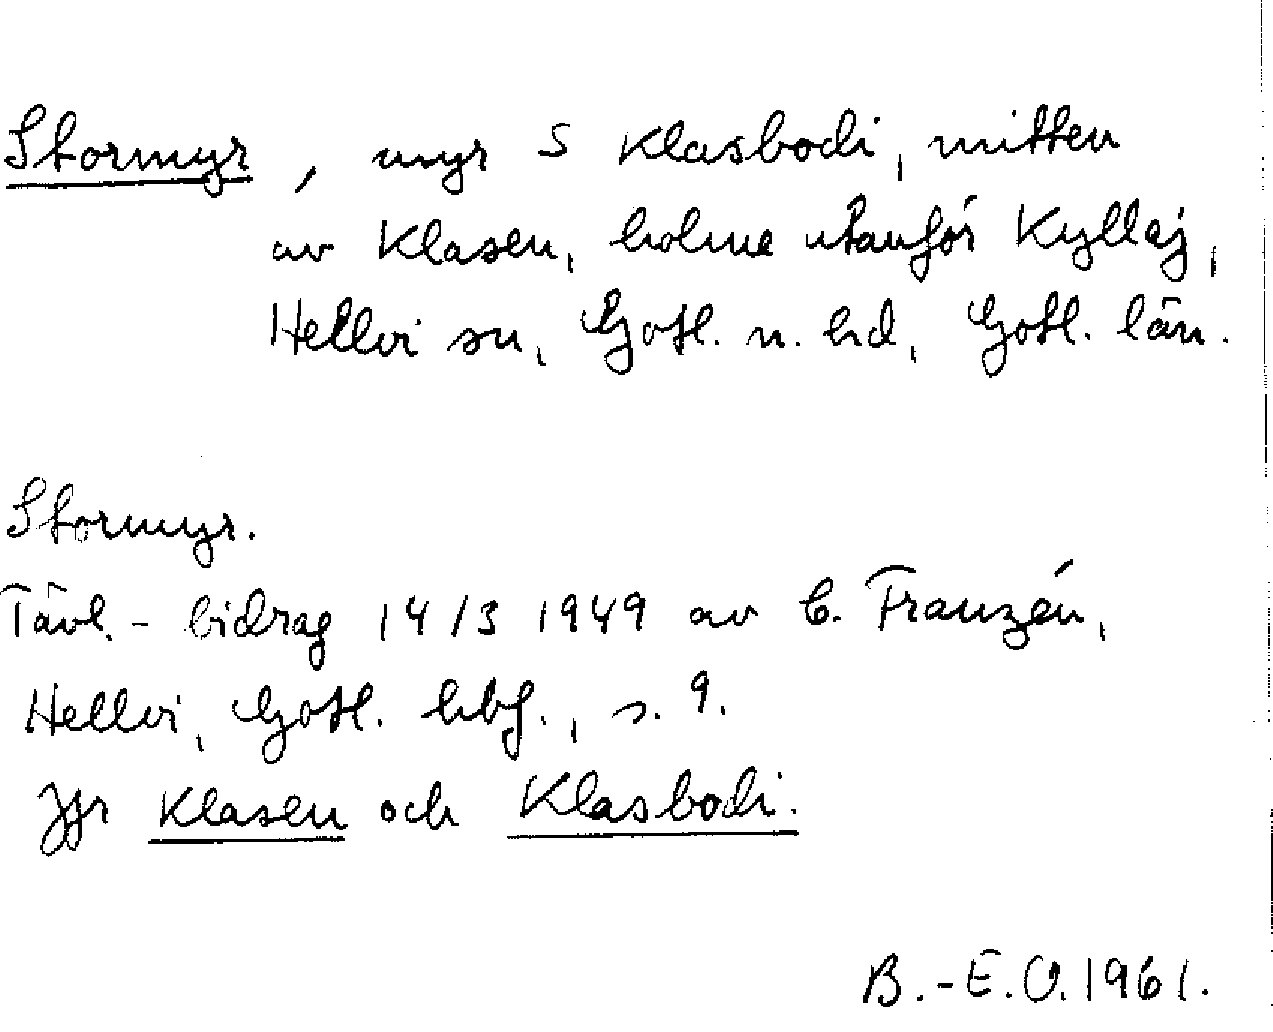 Stormyr, myr S Klasbodi, mitten
av Klasen, holme utanför Kyllaj,
Hellvi sn, Gotl. n. hd, Gotl. län.
Stormyr.
Tävl.-bidrag 14/3 1949 av C. Franzén,
Hellvi, Gotl. hbf., s. 9.
Jfr Klasen och Klasbodi.
B.-E.O. 1961.